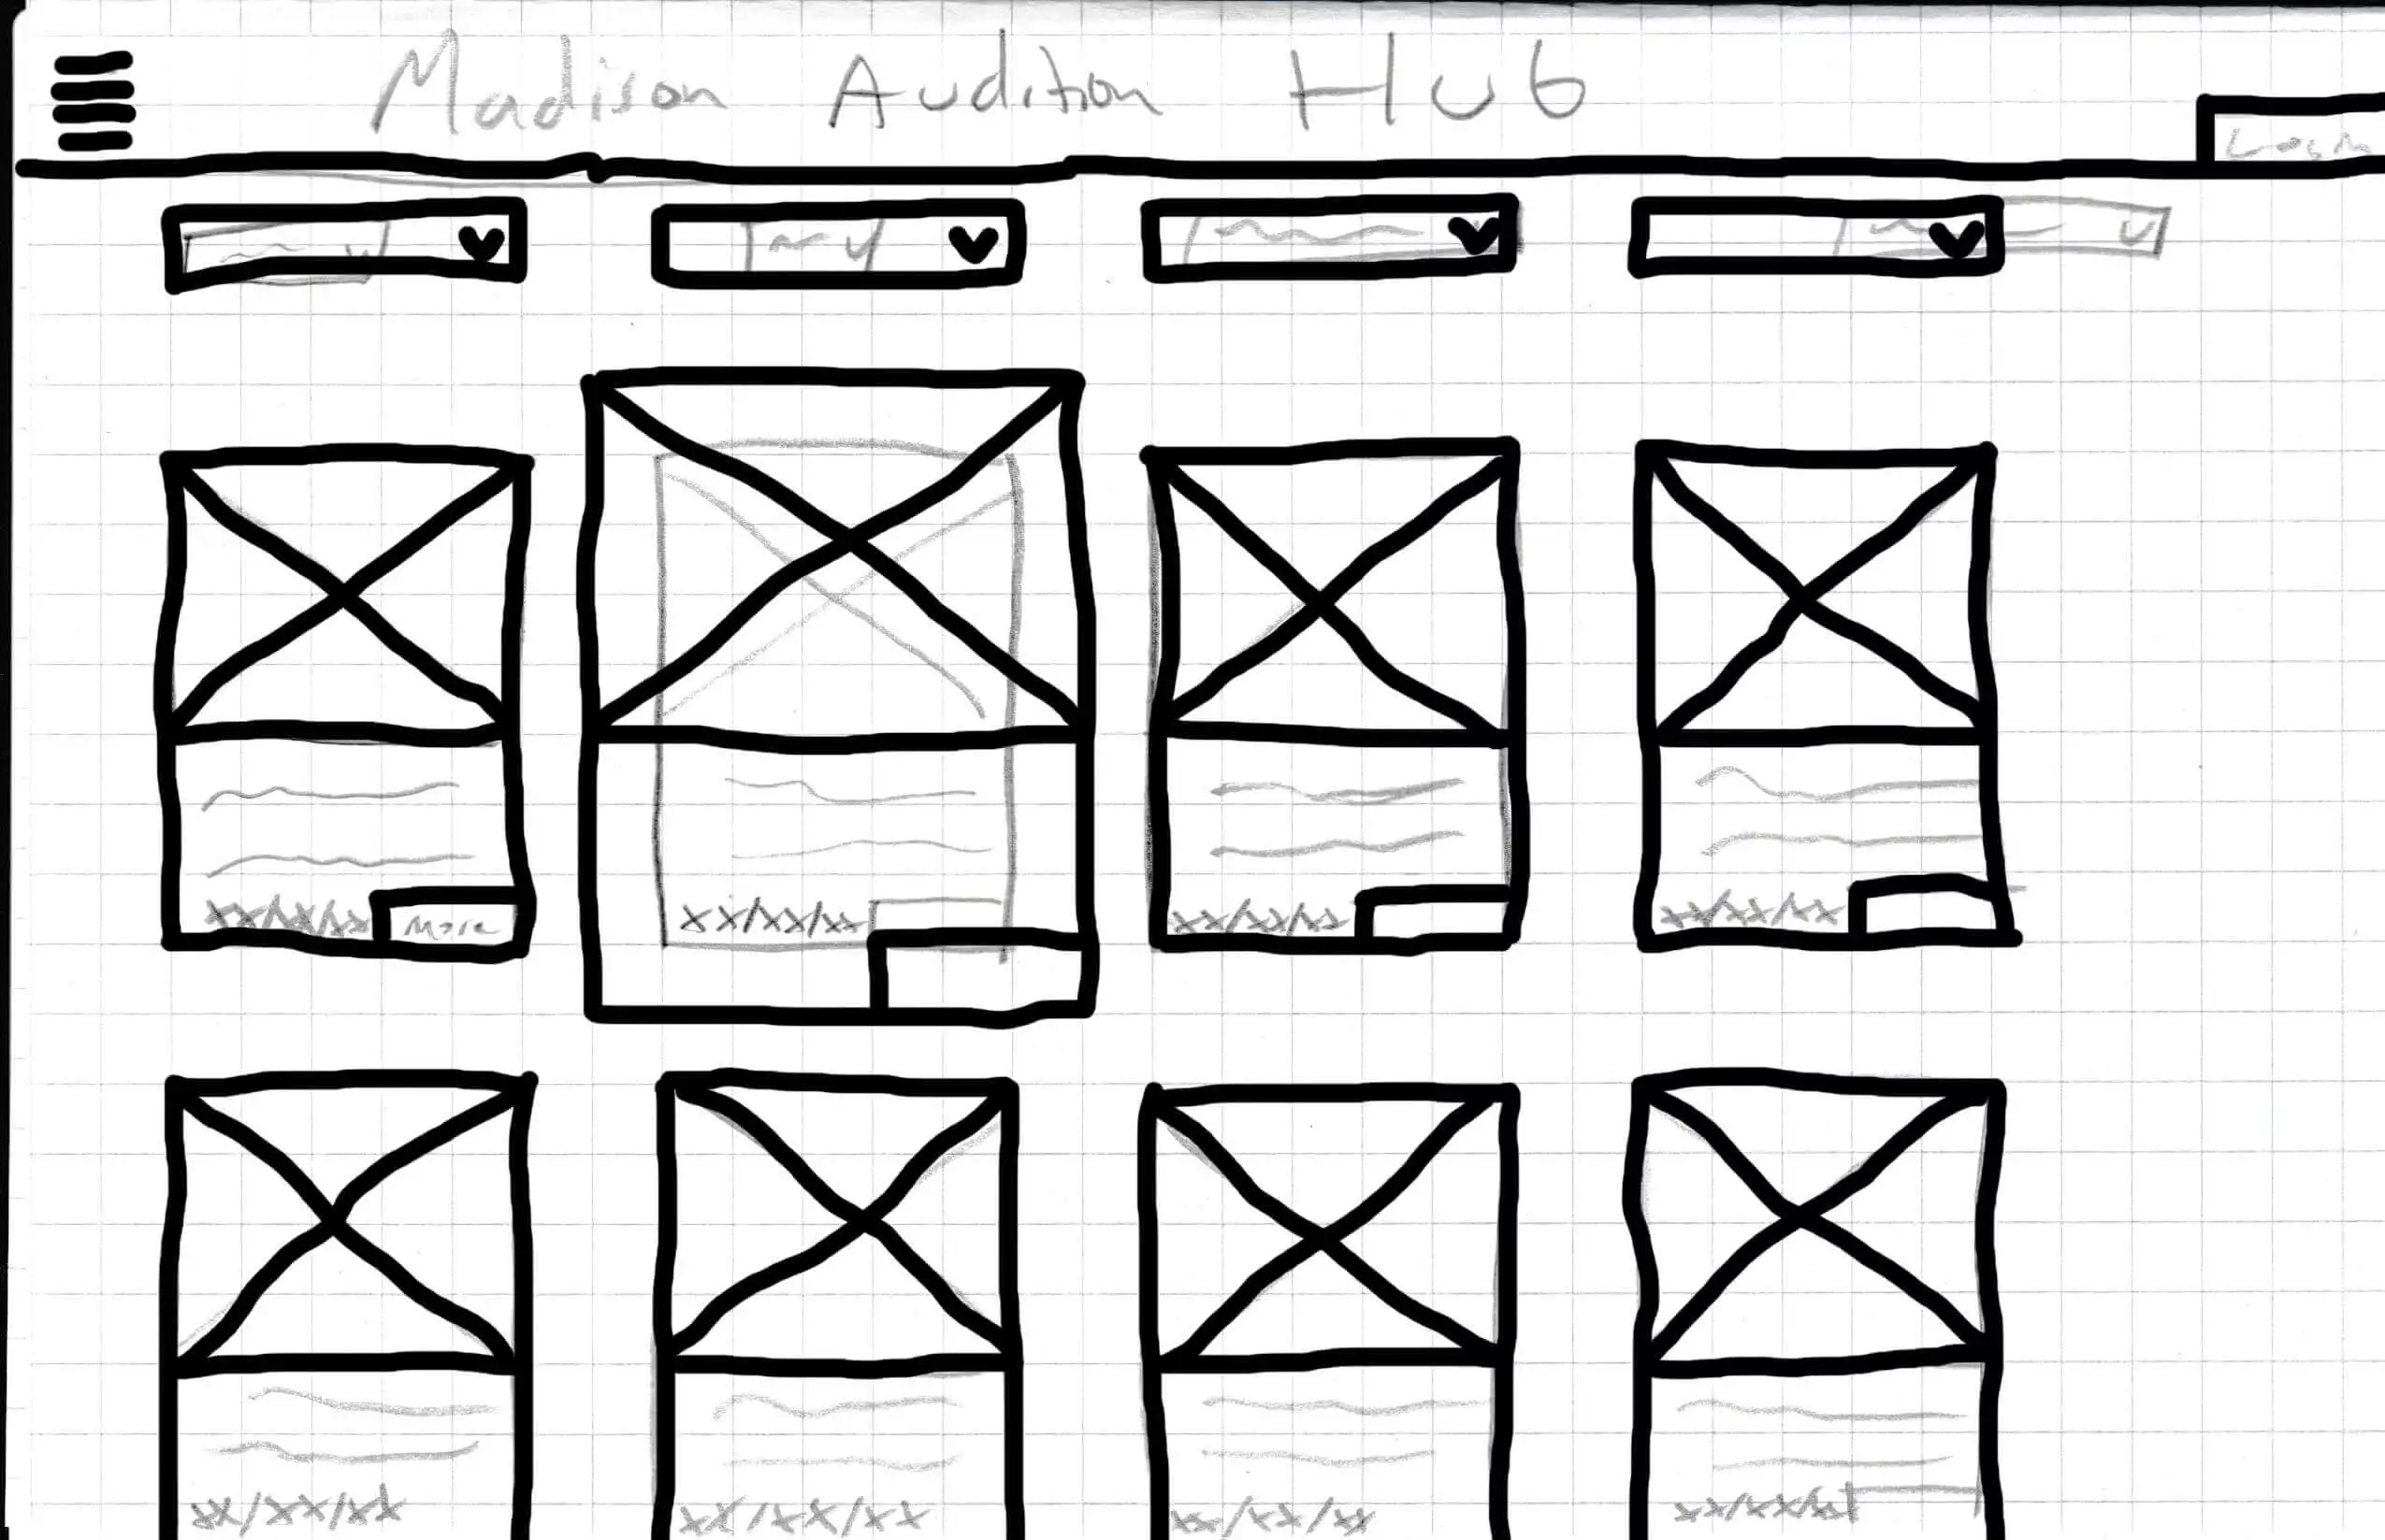 Madison Audition Hub
Login
xx/xx/xx More xx/xx/xx xx/xx/xx xx/xx/xx
xx/xx/xx xx/xx/xx xx/xx/xx xx/xx/xx